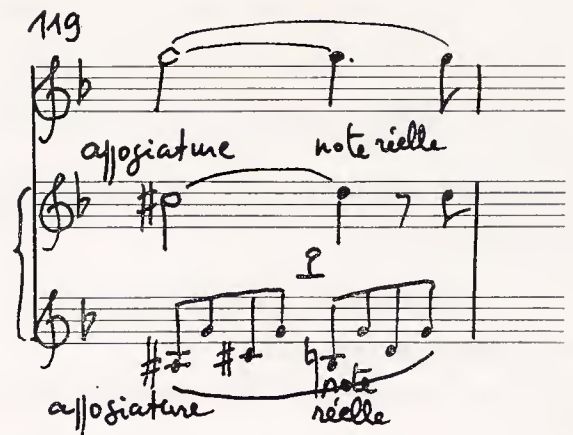 119
appogiature note réelle
appogiature note
réelle